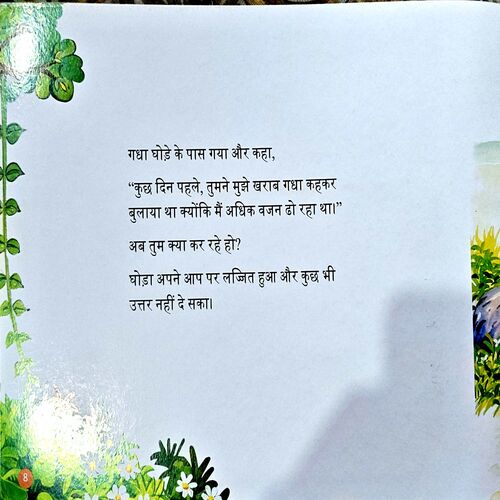 गधा घोड़े के पास गया और कहा,
“कुछ दिन पहले, तुमने मुझे खराब गधा कहकर
बुलाया था क्योंकि मैं अधिक वजन ढो रहा था।”
अब तुम क्या कर रहे हो?
घोड़ा अपने आप पर लज्जित हुआ और कुछ भी
उत्तर नहीं दे सका।
8